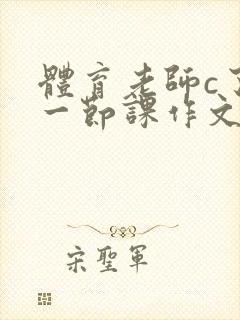 體育老師c
一節課作文
宋聖軍